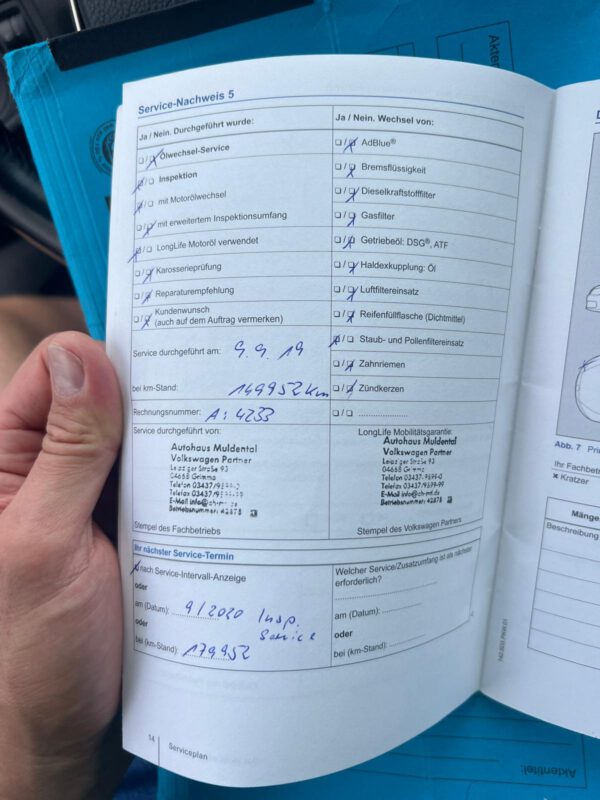 Akten
Service-Nachweis 5
Ja / Nein. Durchgeführt wurde:
❏/❏ Ölwechsel-Service
❏/❏ Inspektion
❏/❏ mit Motorölwechsel
❏/❏ mit erweitertem Inspektionsumfang
❏/❏ LongLife Motoröl verwendet
❏/❏ Karosserieprüfung
❏/❏ Reparaturempfehlung
❏/❏ Kundenwunsch
(auch auf dem Auftrag vermerken)
Service durchgeführt am: 9.9.19
bei km-Stand: 149952 km
Rechnungsnummer: A: 4233
Service durchgeführt von:
Autohaus Muldental
Volkswagen Partner
Leipziger Straße 93
04668 Grimma
Telefon 03437/
Telefax 03437/
E-Mail
Betriebsnummer: 42878
Stempel des Fachbetriebs
Ja / Nein. Wechsel von:
❏/❏ AdBlue®
❏/❏ Bremsflüssigkeit
❏/❏ Dieselkraftstofffilter
❏/❏ Gasfilter
❏/❏ Getriebeöl: DSG®, ATF
❏/❏ Haldexkupplung: Öl
❏/❏ Luftfiltereinsatz
❏/❏ Reifenfüllflasche (Dichtmittel)
❏/❏ Staub- und Pollenfiltereinsatz
❏/❏ Zahnriemen
❏/❏ Zündkerzen
❏/❏ ....................
LongLife Mobilitätsgarantie:
Autohaus Muldental
Volkswagen Partner
Leipziger Straße 93
04668 Grimma
Telefon 03437/9699-0
Telefax 03437/9699-99
E-Mail
Betriebsnummer: 42878
Stempel des Volkswagen Partners
Ihr nächster Service-Termin
❏ nach Service-Intervall-Anzeige
oder
am (Datum): 9/2020 Insp.
Service
oder
bei (km-Stand): 179952
Welcher Service/Zusatzumfang ist als nächster
erforderlich?
am (Datum): ....................
oder
bei (km-Stand): ....................
14
Serviceplan
Abb. 7
Ihr Fachbe
✖ Kratzer
Mänge
Beschreibung
Aktentitel: